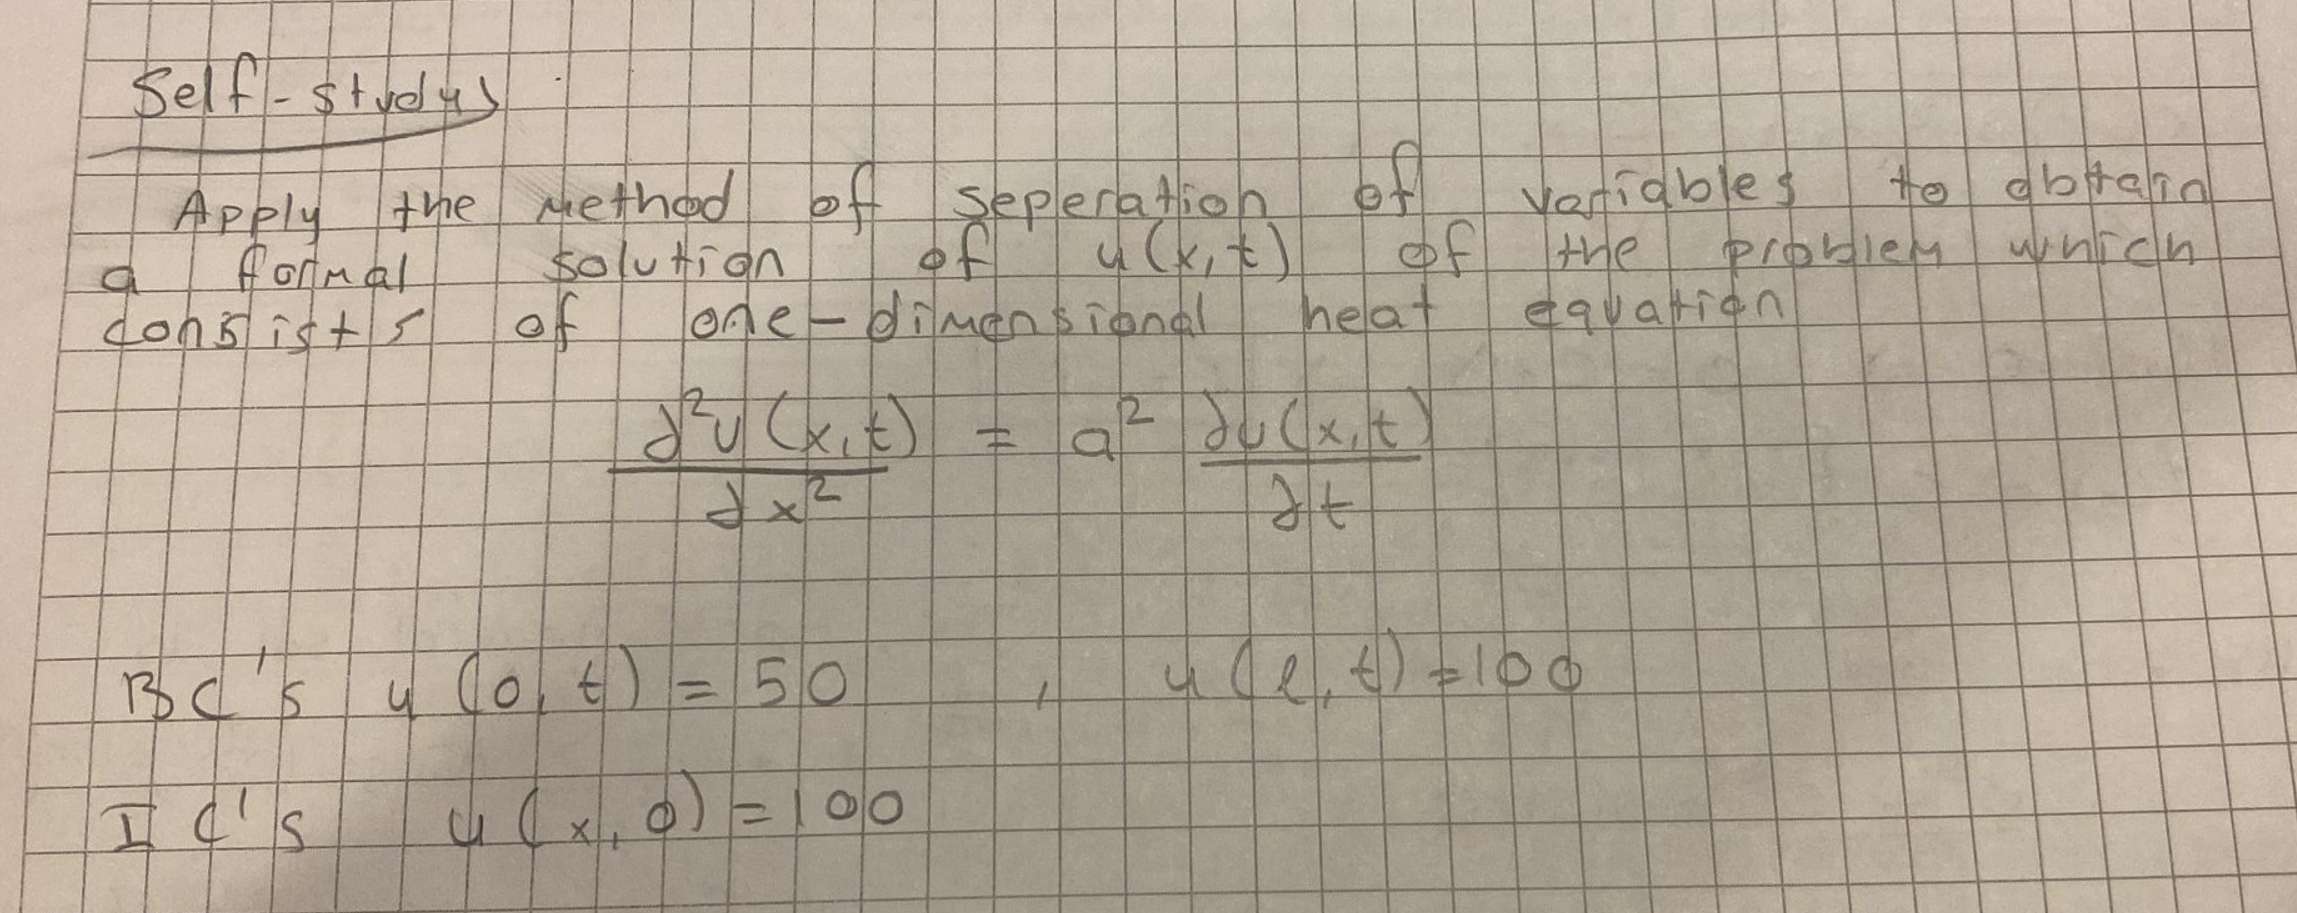 Self-study
Apply the method of seperation of variables to obtain
a formal solution of u(x,t) of the problem which
consists of one-dimensional heat equation
∂²u(x,t)/∂x² = a² ∂u(x,t)/∂t
BC's u(0,t) = 50 , u(l,t) = 100
IC's u(x,0) = 100